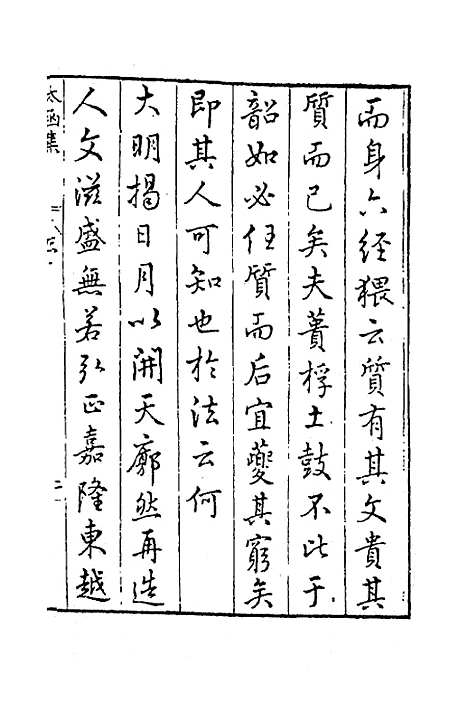 而身六經猥云質有其文貴其
質而已矣夫蕢桴土鼓不比于
韶如必任質而后宜夔其窮矣
即其人可知也於法云何
大明揭日月以開天廓然再造
人文滋盛無若弘正嘉隆東越
太函集
二